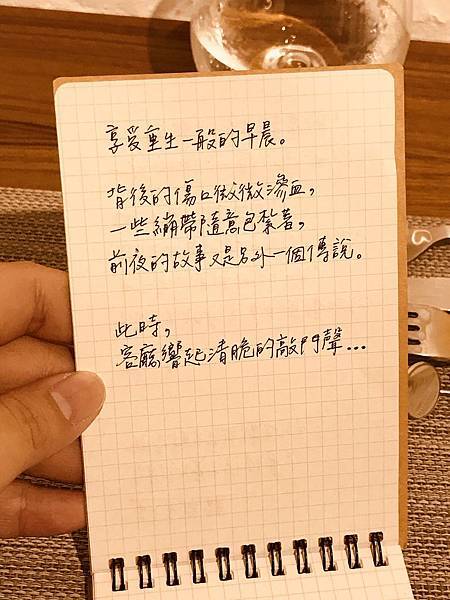 享受重生一般的早晨。
背後的傷口微微滲血，
一些繃帶隨意包紮著，
前夜的故事又是另外一個傳說。
此時，
客廳響起清脆的敲門聲...